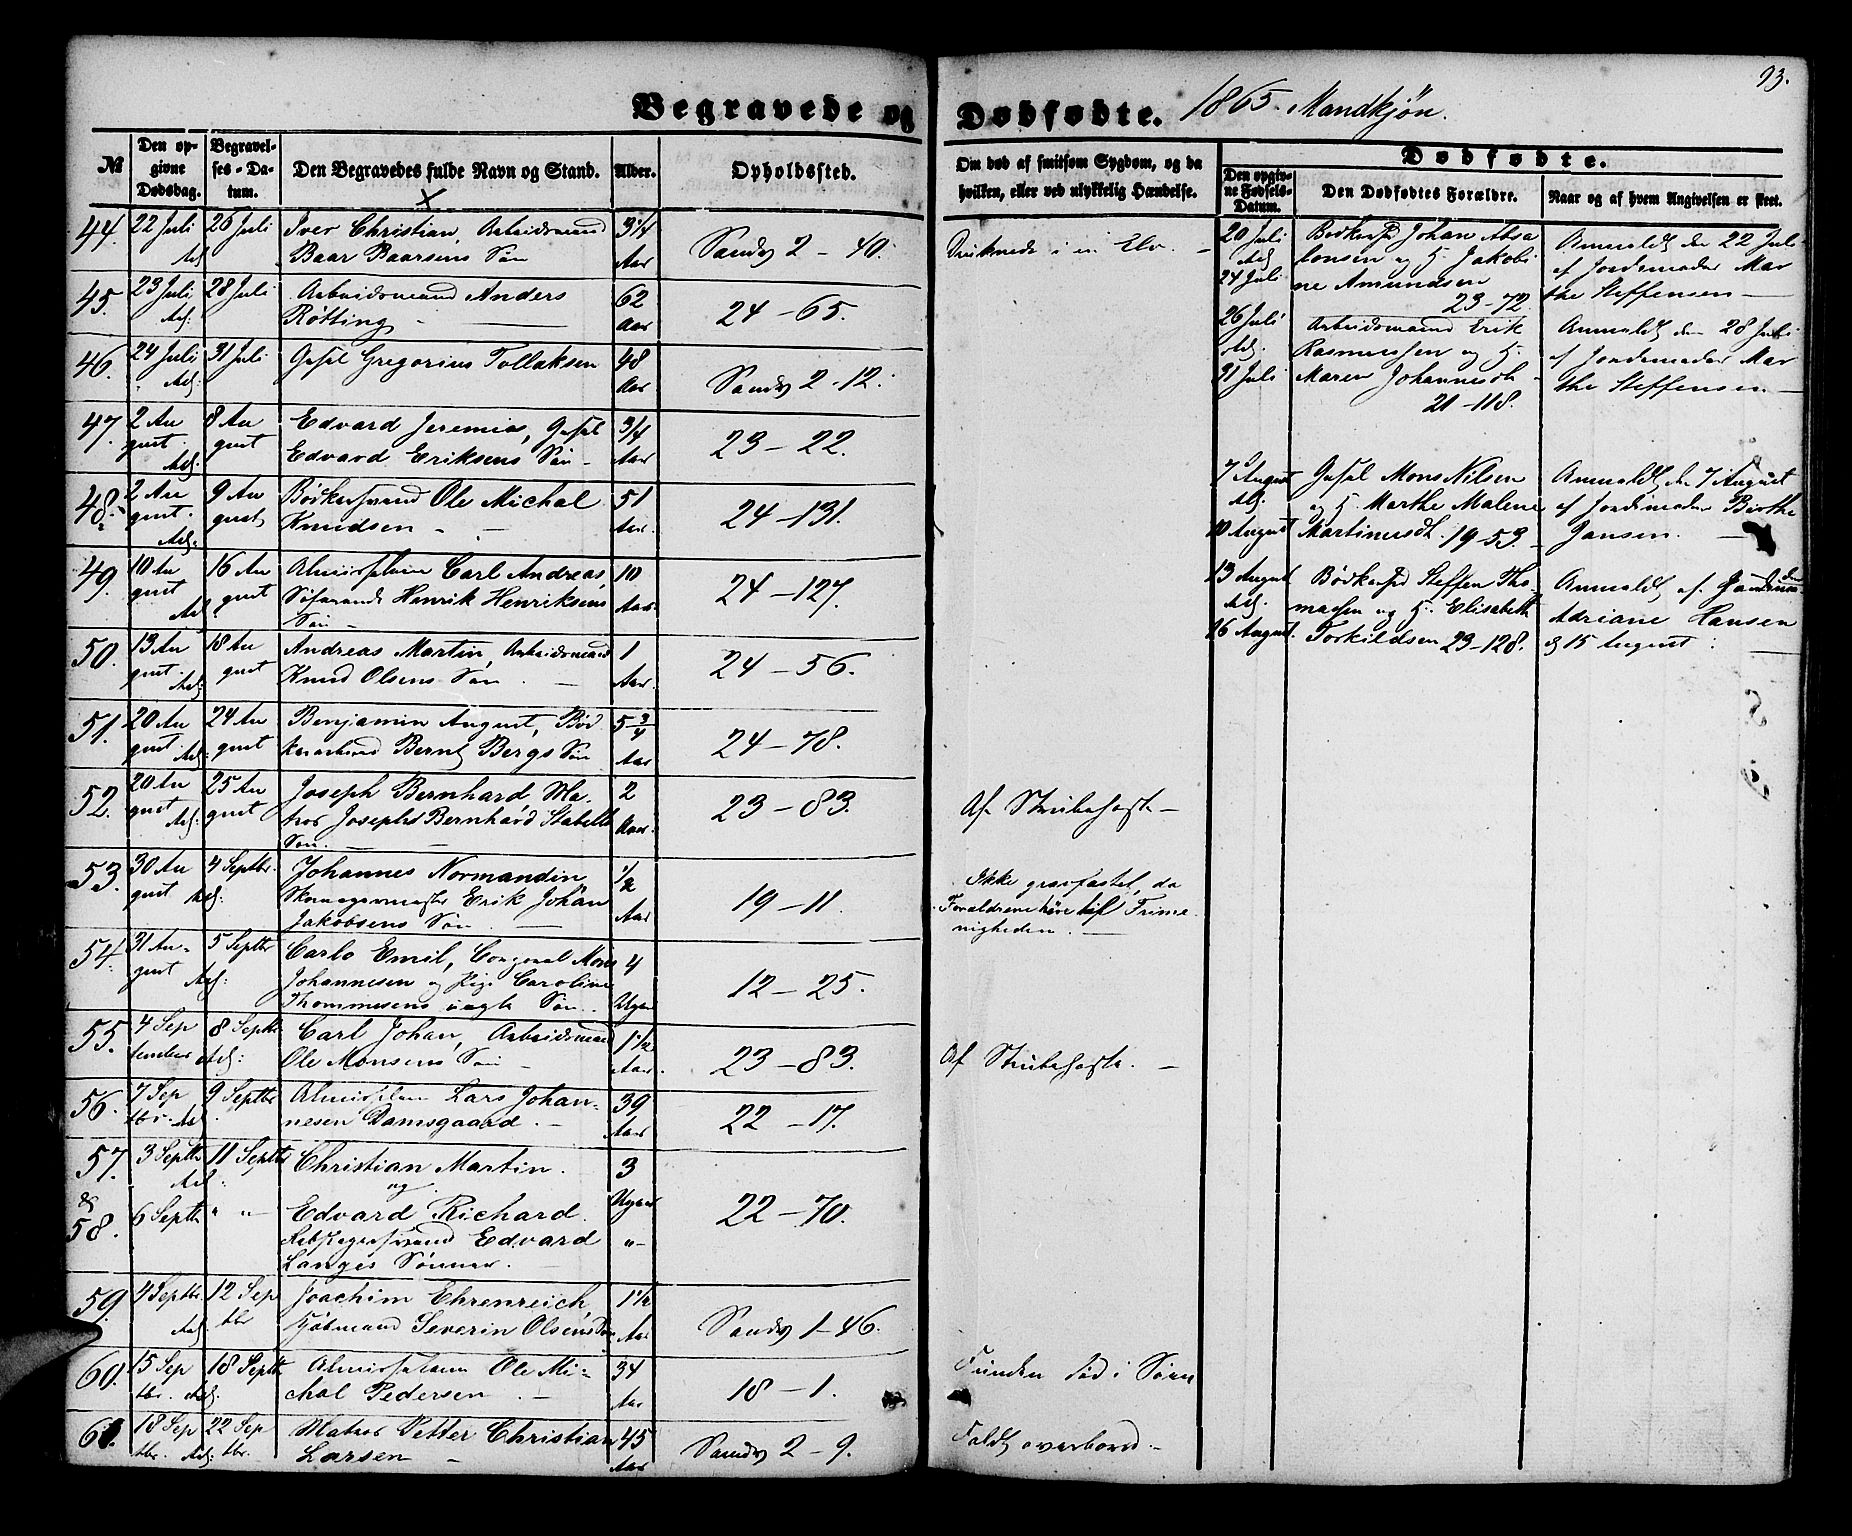 93.
Begravede og Dødfødte. 1865. Mandkjøn.
№
Den opgivne Dødsdag.
Begravelses-Datum.
Den Begravedes fulde Navn og Stand.
Alder.
Opholdssted.
Om død af smitsom Sygdom, og da hvilken, eller ved ulykkelig Hændelse.
Dødfødte.
Den opgivne Fødsels-Datum.
Den Dødfødtes Forældre.
Naar og af hvem Angivelsen er skeet.
44. 22 Juli 26 Juli Iver Christian, Arbeidsmand 3 1/4
Baar Baarsens Søn Aar Sandv 2 - 40.
Druknede i en Elv. -
45. 23 Juli 28 Juli Arbeidsmand Anders 62
Røtting - Aar 24 - 65.
46. 24 Juli 31 Juli Gregorius Tollaksen 48
Aar Sandv 2 - 12.
47. 2 Au 8 Au Edvard Jeremias, 3/4
gust gust Edvard Eriksens Søn - Aar 23 - 22.
48. 2 Au 9 Au Bødkersvend Ole Michal 51
gust. gust Knudsen - Aar. 24 - 131.
49. 10 Au 16 Au Carl Andreas 10
gust gust Henrik Henriksens Aar. 24 - 127.
Søn
50. 13 Au 18 Au Andreas Martin, Arbeidsmand 1
gust. gust Knud Olsens Søn. - Aar. 24 - 56.
51. 20 Au 24 Au Benjamin August, Bød 5 3/4
gust. gust Bernt Bergs Søn Aar 24 - 78.
52. 20 Au 25 Au Joseph Bernhard Ma- 2
gust gust tros Josephs Bernhard Stabells Aar. 23 - 83.
Søn. -
Af Strubehoste -
53. 30 Au 4 Septbr. Johannes Normandin 1/2
gust Skomagermester Erik Johan
Jakobsens Søn Aar 19 - 11.
Ikke gravfæstet, da
Forældrene høre til Frime
nigheden. -
54. 31 Au- 5 Septbr Carlo Emil, Mons 4
gust Johannesen og Pige Caroline
Thommesens uægte Søn. Uger 12 - 25.
55. 4 Sep 8 Septbr Carl Johan, Arbeidsmand 1 1/2
tember Ole Monsens Søn - Aar. 23 - 83.
Af Strubehoste. -
56. 7 Sep 9 Septbr Lars Johan- 39
tbr. nesen Damsgaard. - Aar 22 - 17.
57. 3 Septbr 11 Septbr Christian Martin. 3
& og Uger
58. 6 Septbr " " - Edvard Richard. 22 - 70.
Edvard " -
Langes Sønner.
59. 4 Septbr. 12 Sep Joachim Ehrenreich, 1 1/2
tbr Kjøbmand Severin Olsens Søn Aar Sandv 1 - 46.
60. 15 Sep 18 Septbr Ole Mi- 34
tbr. chal Pedersen. - Aar 18 - 1.
Funden død i Søen
61. 18 Sep 22 Sep Matros Petter Christian 45
tbr. tbr. Larsen - Aar Sandv 2 - 9.
Faldt overbord. -
20 Juli Johan Absa
lonsen og H. Jakobi
24 Juli ne Amundsen
23 - 72.
Anmeldt den 22 Jul-
af Jordemoder Mar
the Steffensen -
26 Juli Arbeidsmand Erik
Rasmussen og H.
31 Juli Maren Johannesdt -
21 - 118.
Anmeldt den 28 Juli
af Jordemoder Mar
the Steffensen -
7 August Mons Nilsen
og H. Marthe Malene
10 August Martinusdt. 19 - 53.
Anmeldt den 7 August
af Jordemoder Birthe
Jansen. -
13 August Bødkersvd Steffen Tho-
massen og H. Elisabeth
16 August. Torkildsen 23 - 128.
Anmeldt af
Adriane Hansen
d 15 August. -